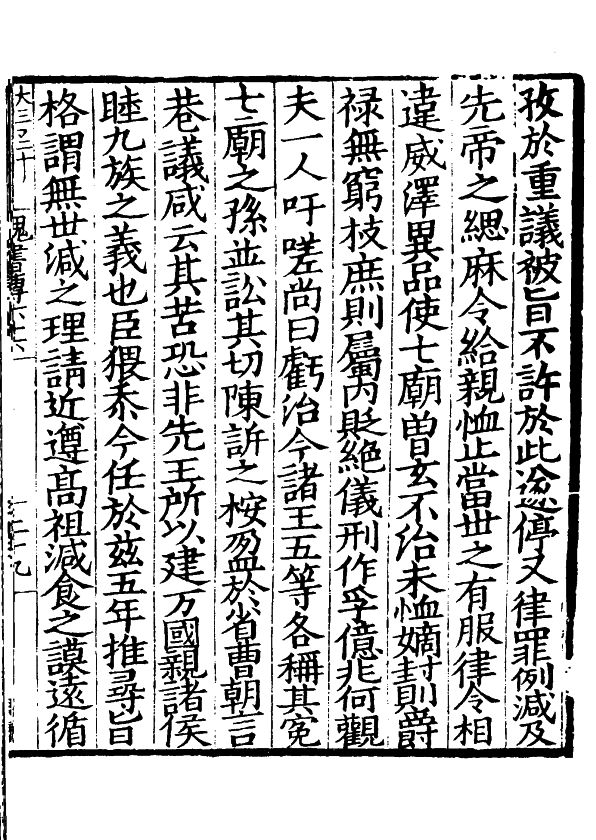 孜於重議被旨不許於此遂停又律罪例減及
先帝之緦麻令給親恤止當世之有服律令相
違威澤異品使七廟曾玄不治未恤嫡封則爵
禄無窮枝庶則屬內貶絕儀刑作孚億兆何觀
夫一人吁嗟尚曰虧治今諸王五等各稱其冤
七廟之孫並訟其切陳訴之桉盈於省曹朝言
巷議咸云其苦恐非先王所以建万國親諸侯
睦九族之義也臣猥忝今任於兹五年推尋旨
格謂無世減之理請近遵高祖減食之謨遠循
魏書傳六十六